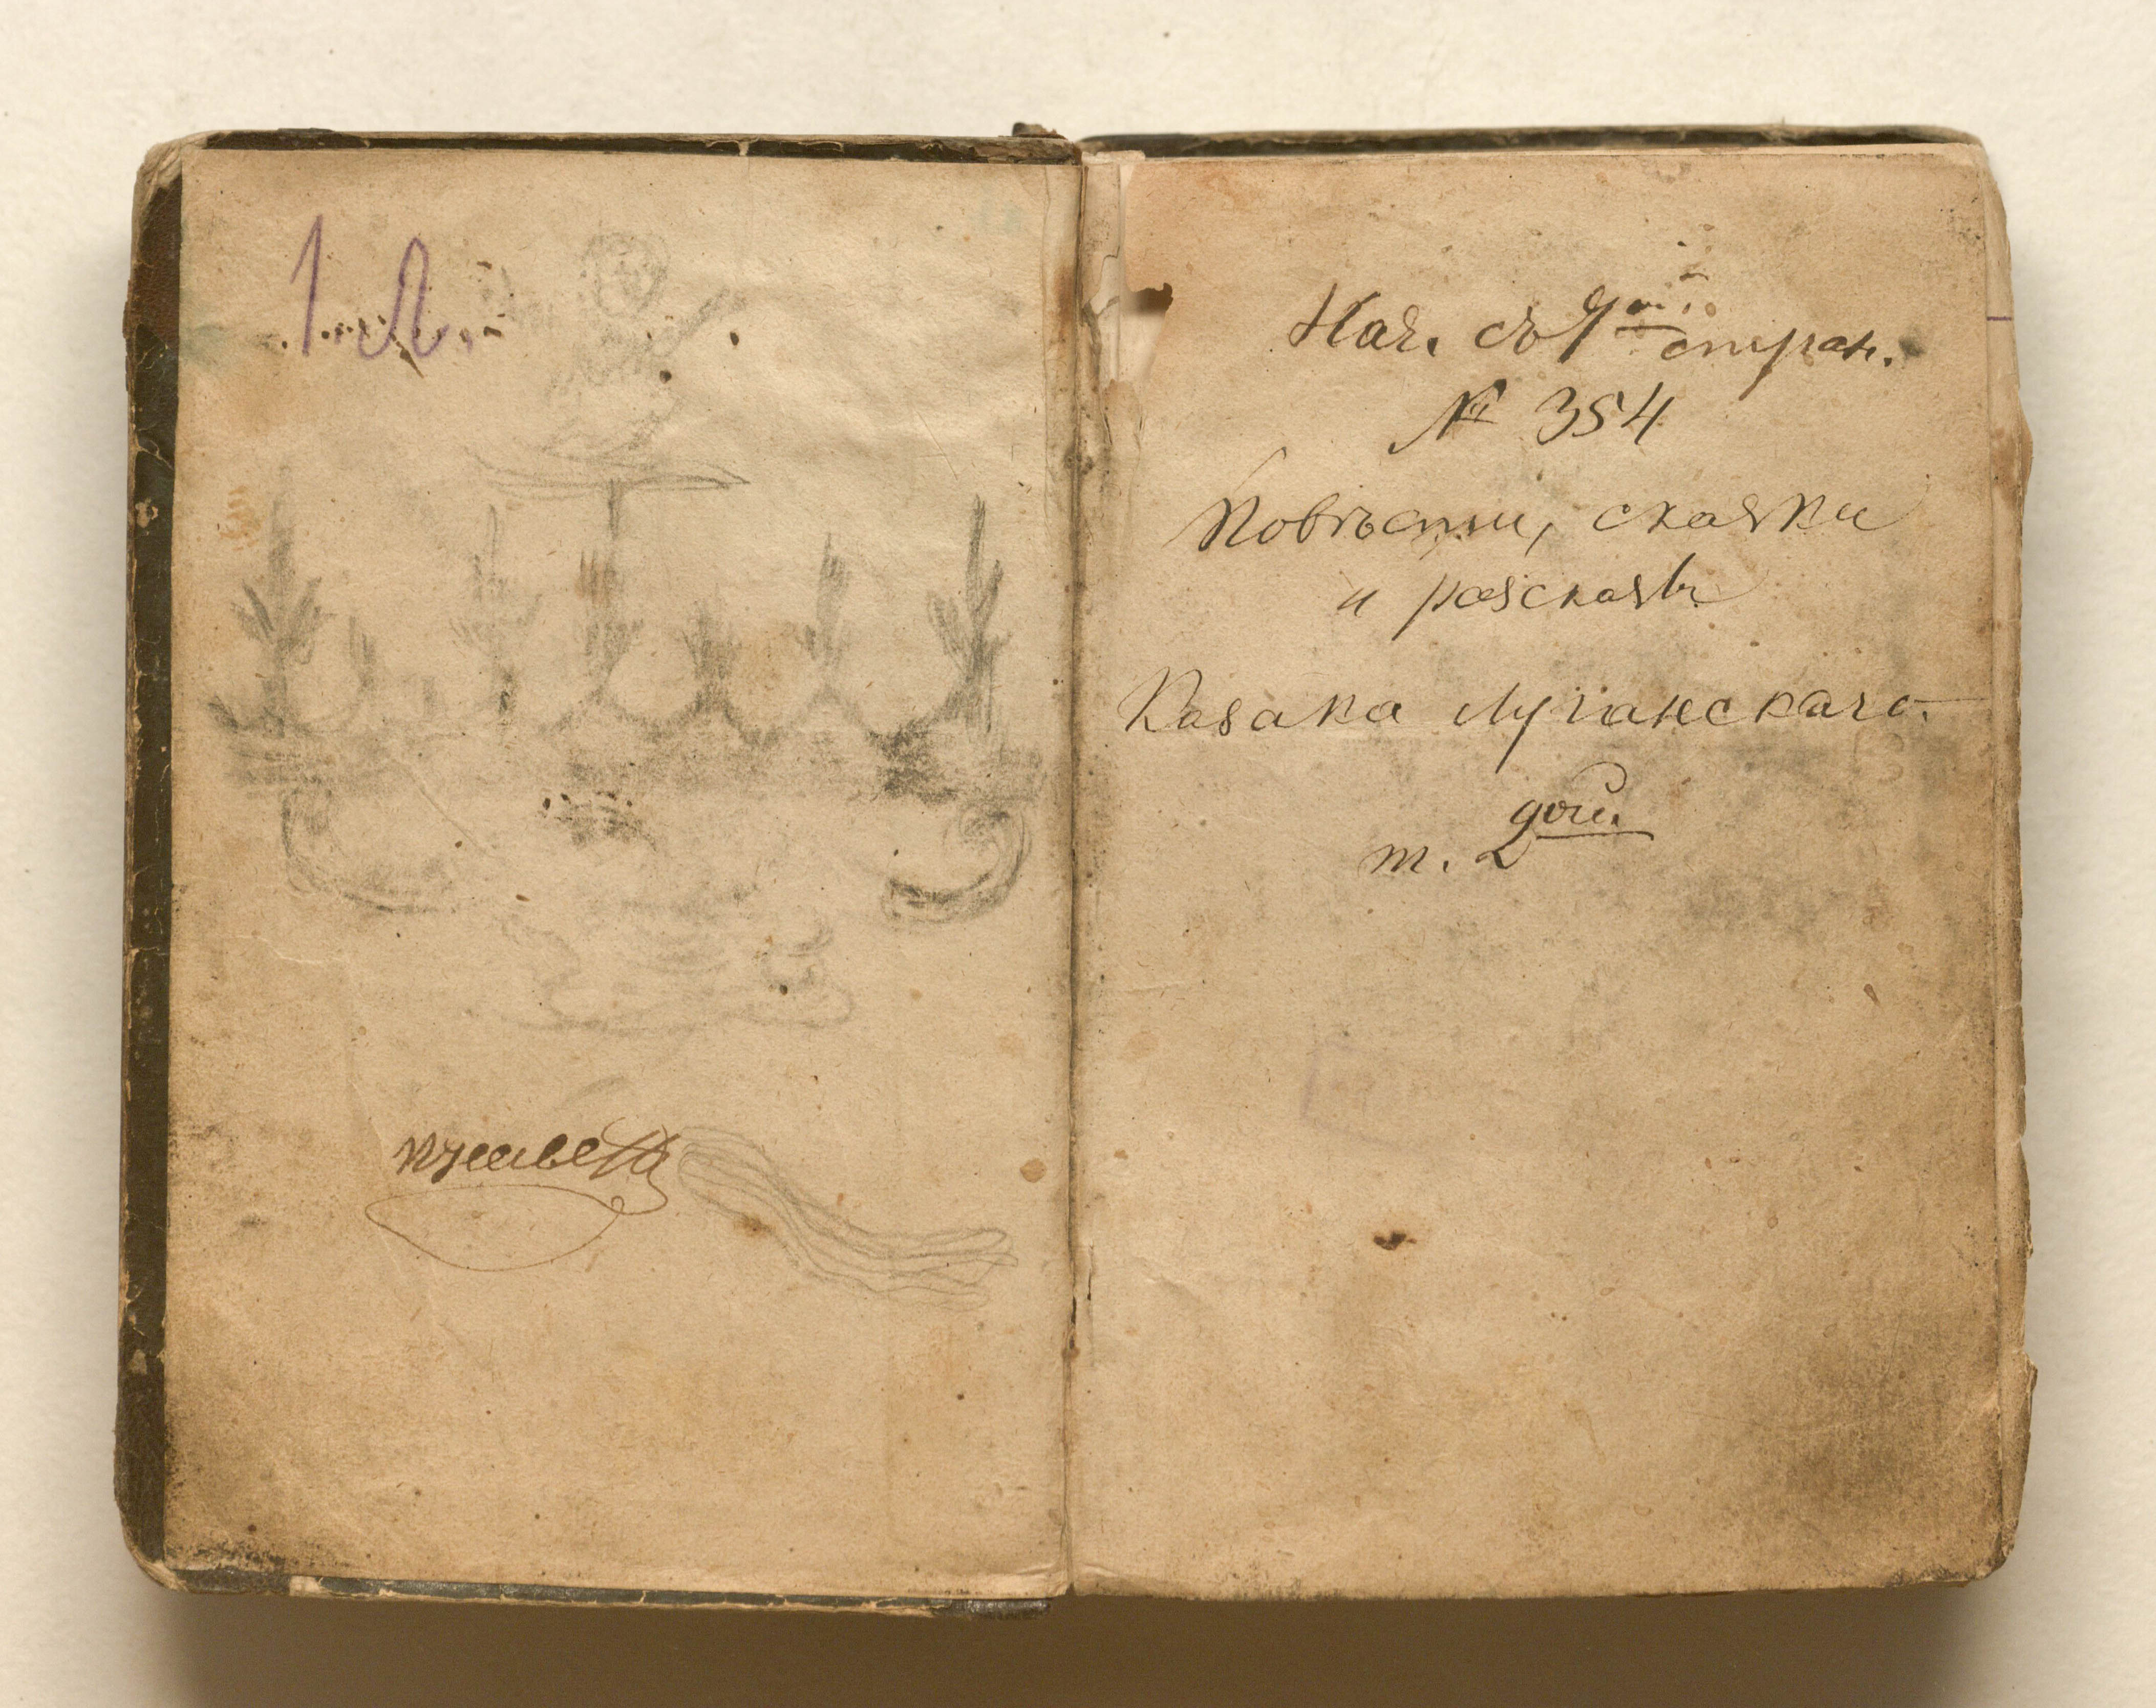 1 Л.
Нач. съ 9ой стран.
№ 354
Повѣсти, сказки
и разсказы
Казака Луганскаго.
т. 2